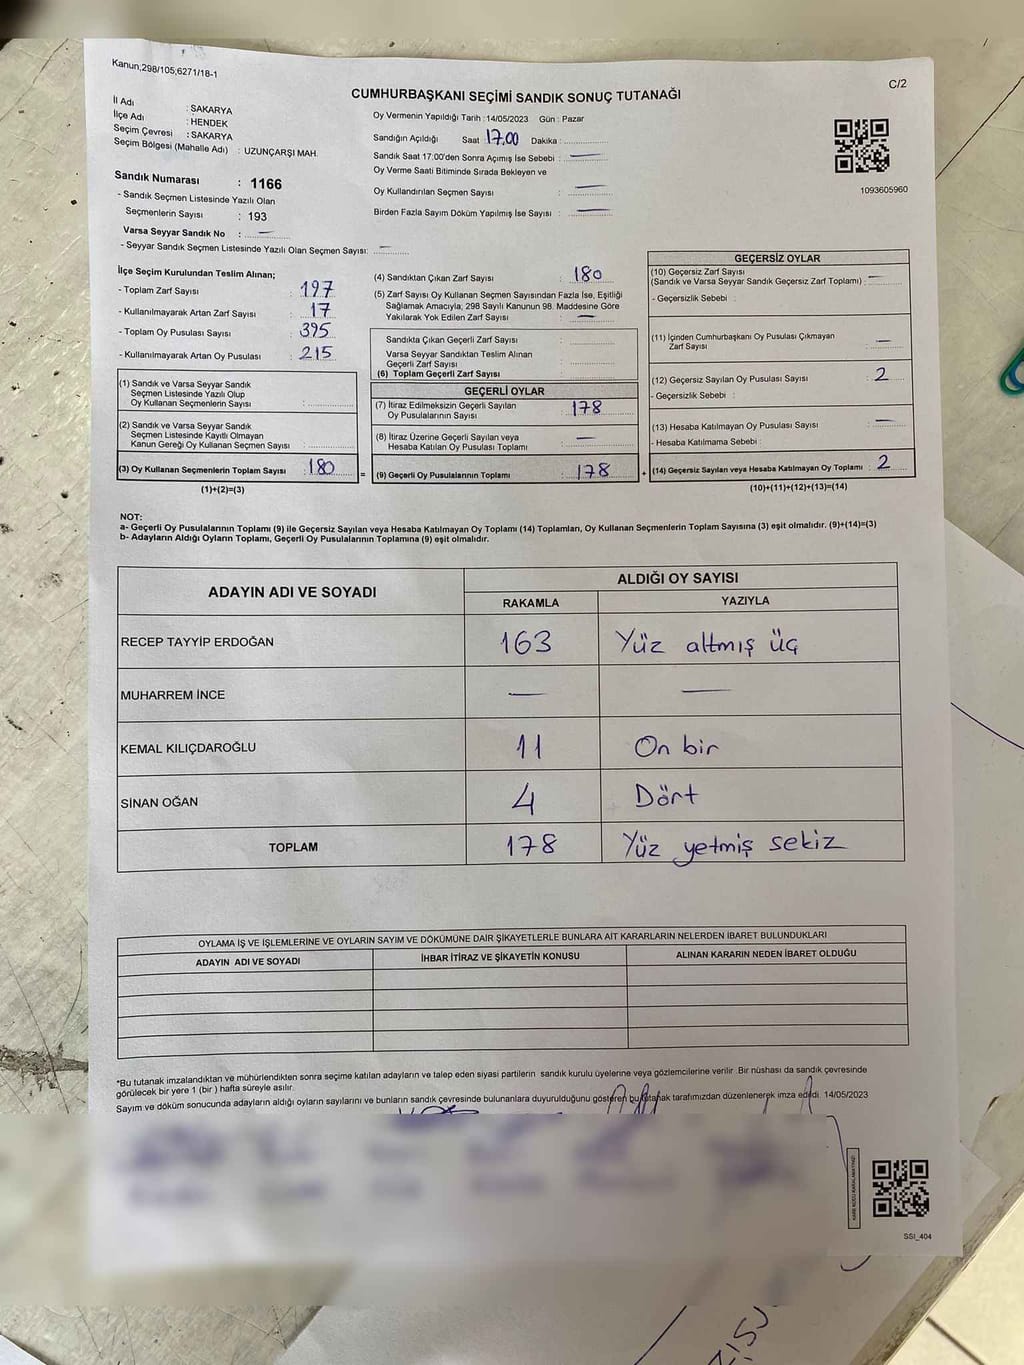 Kanun;298/105;6271/18-1
C/2
CUMHURBAŞKANI SEÇİMİ SANDIK SONUÇ TUTANAĞI
İl Adı : SAKARYA
İlçe Adı : HENDEK
Seçim Çevresi : SAKARYA
Seçim Bölgesi (Mahalle Adı) : UZUNÇARŞI MAH.
Sandık Numarası : 1166
- Sandık Seçmen Listesinde Yazılı Olan
Seçmenlerin Sayısı : 193
Varsa Seyyar Sandık No : —
- Seyyar Sandık Seçmen Listesinde Yazılı Olan Seçmen Sayısı: —
Oy Vermenin Yapıldığı Tarih : 14/05/2023 Gün : Pazar
Sandığın Açıldığı Saat 17.00 Dakika :
Sandık Saat 17:00'den Sonra Açımış İse Sebebi : —
Oy Verme Saati Bitiminde Sırada Bekleyen ve
Oy Kullandırılan Seçmen Sayısı : —
Birden Fazla Sayım Döküm Yapılmış İse Sayısı : —
1093605960
İlçe Seçim Kurulundan Teslim Alınan;
- Toplam Zarf Sayısı : 197
- Kullanılmayarak Artan Zarf Sayısı : 17
- Toplam Oy Pusulası Sayısı : 395
- Kullanılmayarak Artan Oy Pusulası : 215
(1) Sandık ve Varsa Seyyar Sandık
Seçmen Listesinde Yazılı Olup
Oy Kullanan Seçmenlerin Sayısı :
(2) Sandık ve Varsa Seyyar Sandık
Seçmen Listesinde Kayıtlı Olmayan
Kanun Gereği Oy Kullanan Seçmen Sayısı :
(3) Oy Kullanan Seçmenlerin Toplam Sayısı : 180
(1)+(2)=(3)
(4) Sandıktan Çıkan Zarf Sayısı : 180
(5) Zarf Sayısı Oy Kullanan Seçmen Sayısından Fazla İse, Eşitliği
Sağlamak Amacıyla, 298 Sayılı Kanunun 98. Maddesine Göre
Yakılarak Yok Edilen Zarf Sayısı : —
Sandıkta Çıkan Geçerli Zarf Sayısı :
Varsa Seyyar Sandıktan Teslim Alınan
Geçerli Zarf Sayısı :
(6) Toplam Geçerli Zarf Sayısı :
GEÇERLİ OYLAR
(7) İtiraz Edilmeksizin Geçerli Sayılan
Oy Pusulalarının Sayısı : 178
(8) İtiraz Üzerine Geçerli Sayılan veya
Hesaba Katılan Oy Pusulası Toplamı : —
= (9) Geçerli Oy Pusulalarının Toplamı : 178
GEÇERSİZ OYLAR
(10) Geçersiz Zarf Sayısı
(Sandık ve Varsa Seyyar Sandık Geçersiz Zarf Toplamı) : —
- Geçersizlik Sebebi :
(11) İçinden Cumhurbaşkanı Oy Pusulası Çıkmayan
Zarf Sayısı : —
(12) Geçersiz Sayılan Oy Pusulası Sayısı : 2
- Geçersizlik Sebebi :
(13) Hesaba Katılmayan Oy Pusulası Sayısı : —
- Hesaba Katılmama Sebebi :
+ (14) Geçersiz Sayılan veya Hesaba Katılmayan Oy Toplamı : 2
(10)+(11)+(12)+(13)=(14)
NOT:
a- Geçerli Oy Pusulalarının Toplamı (9) ile Geçersiz Sayılan veya Hesaba Katılmayan Oy Toplamı (14) Toplamları, Oy Kullanan Seçmenlerin Toplam Sayısına (3) eşit olmalıdır. (9)+(14)=(3)
b- Adayların Aldığı Oyların Toplamı, Geçerli Oy Pusulalarının Toplamına (9) eşit olmalıdır.
ADAYIN ADI VE SOYADI ALDIĞI OY SAYISI
RAKAMLA YAZIYLA
RECEP TAYYİP ERDOĞAN 163 Yüz altmış üç
MUHARREM İNCE — —
KEMAL KILIÇDAROĞLU 11 On bir
SİNAN OĞAN 4 Dört
TOPLAM 178 Yüz yetmiş sekiz
OYLAMA İŞ VE İŞLEMLERİNE VE OYLARIN SAYIM VE DÖKÜMÜNE DAİR ŞİKAYETLERLE BUNLARA AİT KARARLARIN NELERDEN İBARET BULUNDUKLARI
ADAYIN ADI VE SOYADI İHBAR İTİRAZ VE ŞİKAYETİN KONUSU ALINAN KARARIN NEDEN İBARET OLDUĞU
*Bu tutanak imzalandıktan ve mühürlendikten sonra seçime katılan adayların ve talep eden siyasi partilerin sandık kurulu üyelerine veya gözlemcilerine verilir .Bir nüshası da sandık çevresinde
görülecek bir yere 1 (bir ) hafta süreyle asılır.
Sayım ve döküm sonucunda adayların aldığı oyların sayılarını ve bunların sandık çevresinde bulunanlara duyurulduğunu gösteren bu tutanak tarafımızdan düzenlenerek imza edildi. 14/05/2023
SSI_404